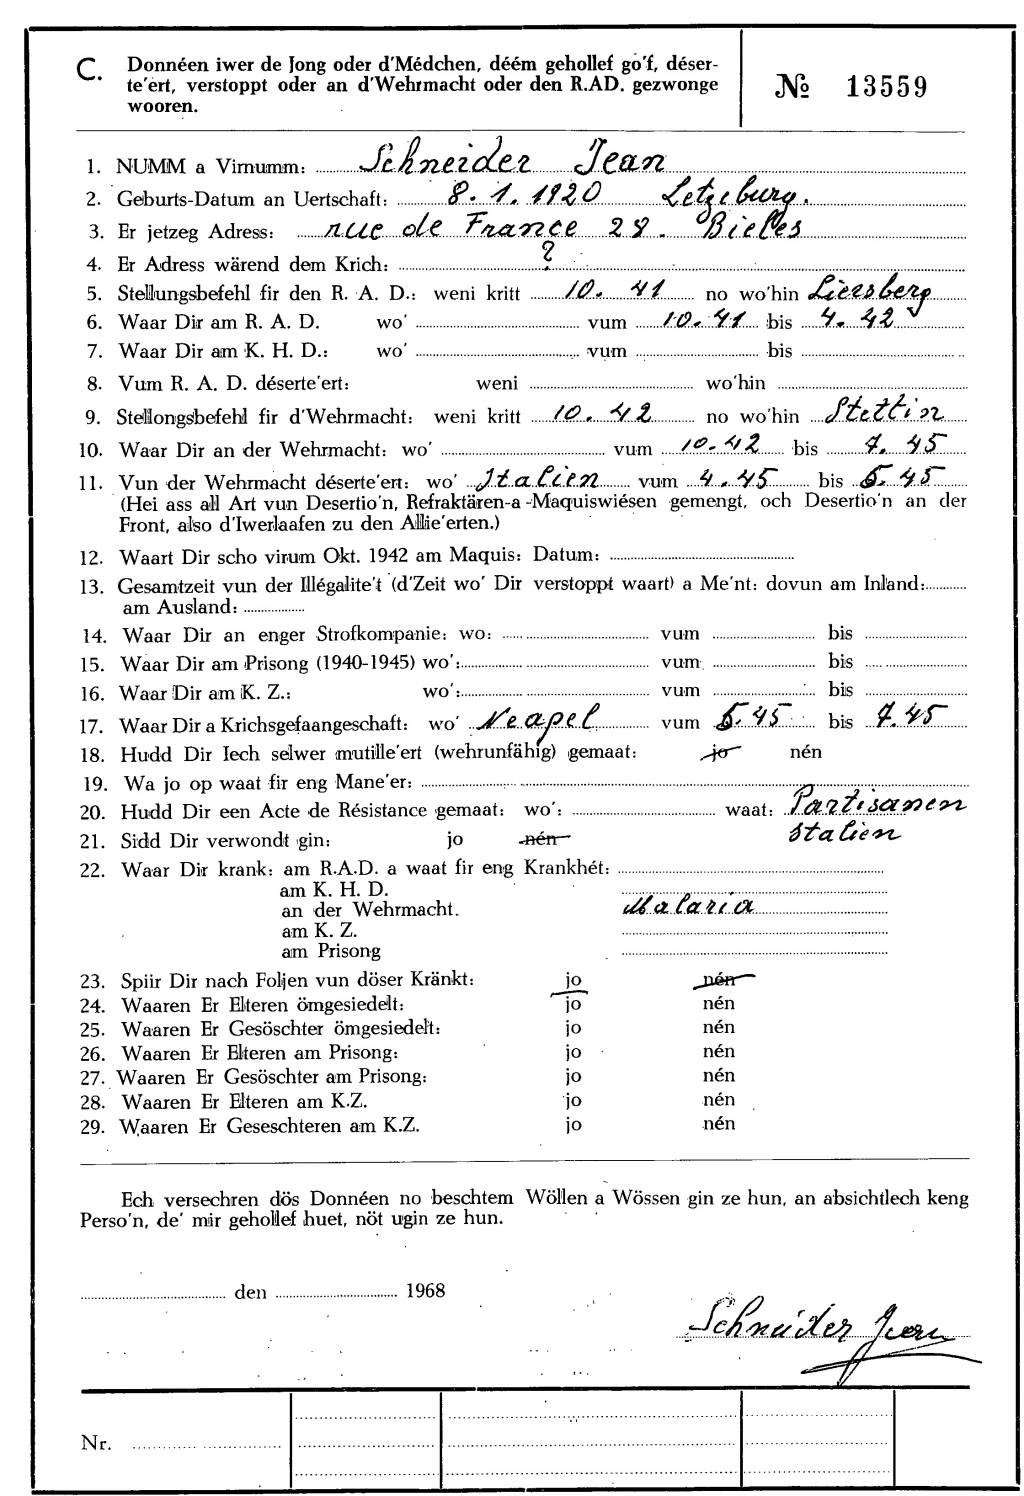 C. Donnéen iwer de Jong oder d'Médchen, déém gehollef go'f, déser-
te'ert, verstoppt oder an d'Wehrmacht oder den R.AD. gezwonge
wooren.
№ 13559
1. NUMM a Virnumm: Schneider Jean
2. Geburts-Datum an Uertschaft: 8. 1. 1920 Letzeburg.
3. Er jetzeg Adress: rue de France 28. Bieles
4. Er Adress wärend dem Krich: ?
5. Stellungsbefehl fir den R. A. D.: weni kritt 10. 41 no wo'hin Liersberg
6. Waar Dir am R. A. D. wo' vum 10. 41 bis 4. 42
7. Waar Dir am K. H. D.: wo' vum bis
8. Vum R. A. D. déserte'ert: weni wo'hin
9. Stellongsbefehl fir d'Wehrmacht: weni kritt 10. 42 no wo'hin Stettin
10. Waar Dir an der Wehrmacht: wo' vum 10. 42 bis 7. 45
11. Vun der Wehrmacht déserte'ert: wo' Italien vum 4. 45 bis 5. 45
(Hei ass all Art vun Desertio'n, Refraktären-a -Maquiswiésen gemengt, och Desertio'n an der
Front, also d'Iwerlaafen zu den Allie'erten.)
12. Waart Dir scho virum Okt. 1942 am Maquis: Datum:
13. Gesamtzeit vun der Illégalite't (d'Zeit wo' Dir verstoppt waart) a Me'nt: dovun am Inland:
am Ausland:
14. Waar Dir an enger Strofkompanie: wo: vum bis
15. Waar Dir am Prisong (1940-1945) wo': vum bis
16. Waar Dir am K. Z.: wo': vum bis
17. Waar Dir a Krichsgefaangeschaft: wo' Neapel vum 5. 45 bis 7. 45
18. Hudd Dir Iech selwer mutille'ert (wehrunfähig) gemaat: jo nén
19. Wa jo op waat fir eng Mane'er:
20. Hudd Dir een Acte de Résistance gemaat: wo': waat: Partisanen
21. Sidd Dir verwondt gin: jo nén Italien
22. Waar Dir krank: am R.A.D. a waat fir eng Krankhét:
am K. H. D.
an der Wehrmacht. Malaria
am K. Z.
am Prisong
23. Spiir Dir nach Foljen vun döser Kränkt: jo nén
24. Waaren Er Elteren ömgesiedelt: jo nén
25. Waaren Er Gesöschter ömgesiedelt: jo nén
26. Waaren Er Elteren am Prisong: jo nén
27. Waaren Er Gesöschter am Prisong: jo nén
28. Waaren Er Elteren am K.Z. jo nén
29. Waaren Er Geseschteren am K.Z. jo nén
Ech versechren dös Donnéen no beschtem Wöllen a Wössen gin ze hun, an absichtlech keng
Perso'n, de' mir gehollef huet, nöt ugin ze hun.
den 1968
Schneider Jean
Nr.